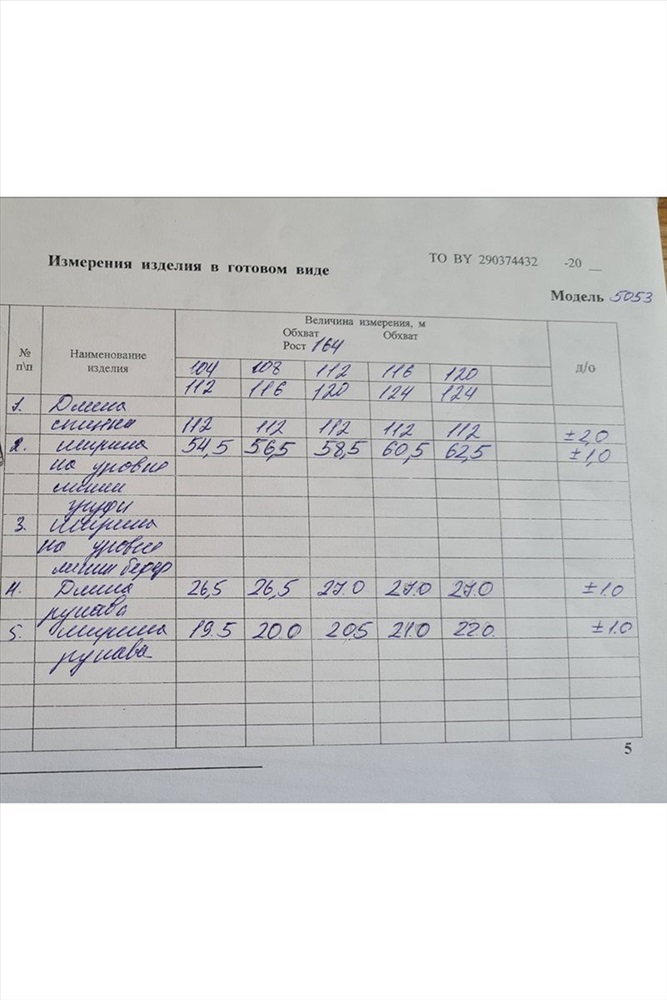 Измерения изделия в готовом виде
ТО BY 290374432 -20 __
Модель 5053
№ п\п
Наименование изделия
Величина измерения, м
Обхват Обхват
Рост 164
д/о
104 108 112 116 120
112 116 120 124 124
1. Длина
спинки 112 112 112 112 112 ±2,0
2. ширина 54,5 56,5 58,5 60,5 62,5 ±1,0
на уровне
линии
груди
3. Ширина
на уровне
линии бедер
4. Длина 26,5 26,5 27.0 27.0 27.0 ±1.0
рукава
5. ширина 19.5 20.0 20.5 21.0 22.0 ±1.0
рукава
5